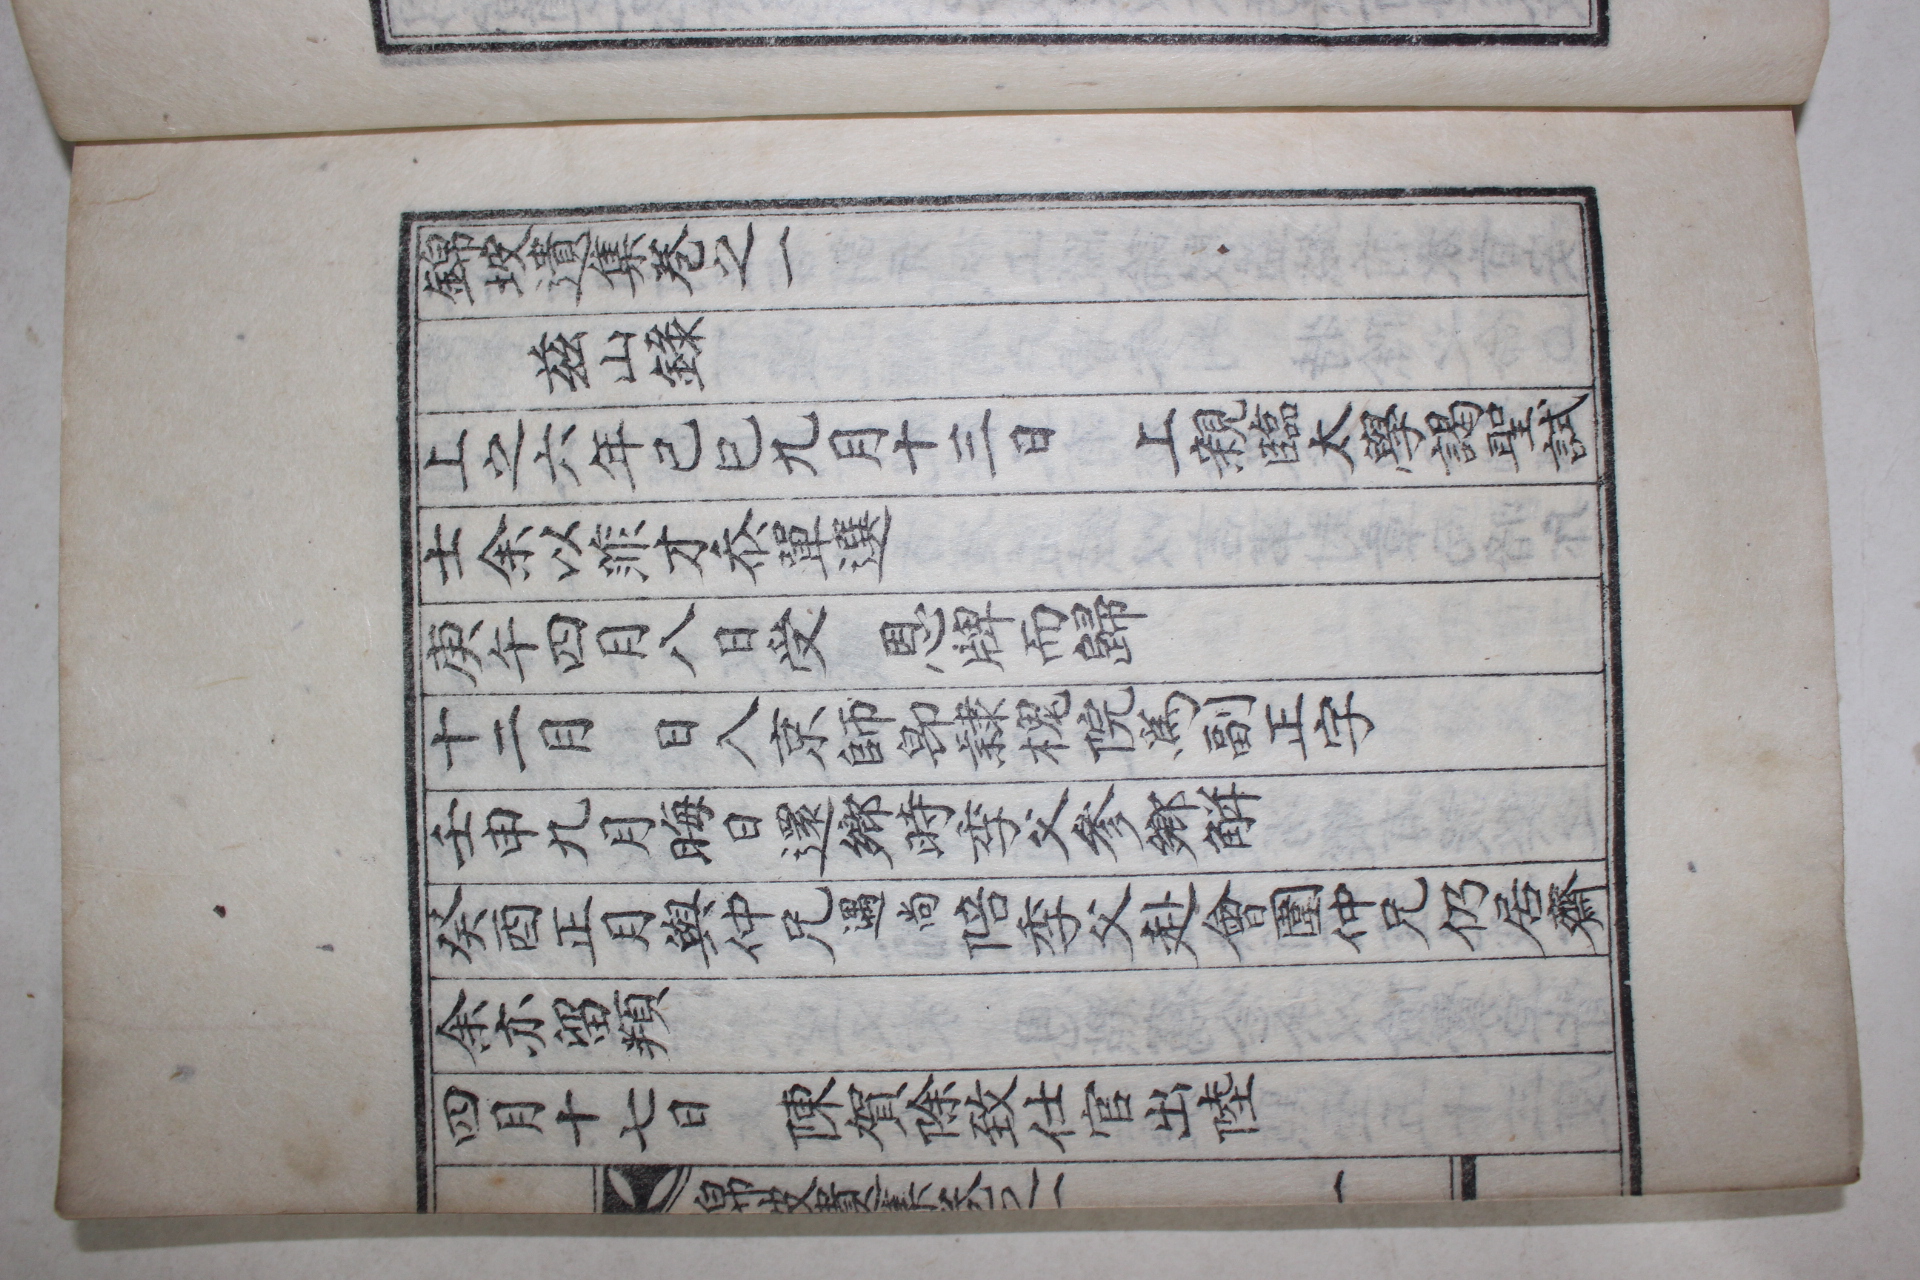 錦坡遺集卷之一
茲山錄
上之六年己巳九月十三日 上親臨太學謁聖試
士余以菲才忝單選
庚午四月八日受 恩牌而歸
十二月 日入京師卽隷槐院爲副正字
壬申九月晦日還鄉時季父參鄉解
癸酉正月與仲兄遇尚陪季父赴會圍仲兄仍居齋
余亦留頖
四月十七日 陳賀除致仕官出陸
錦坡遺集卷之一
一